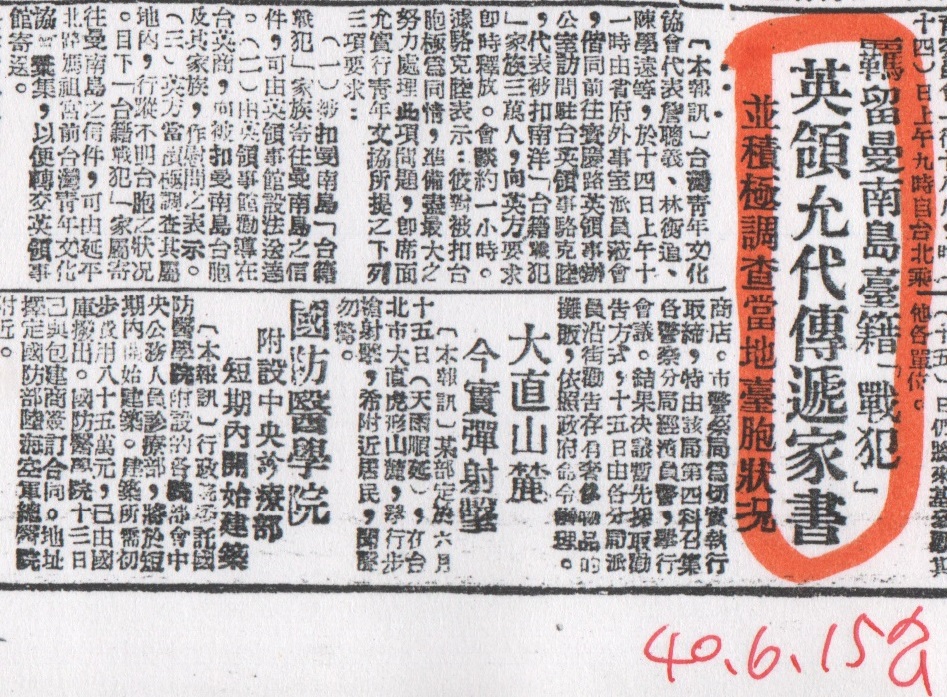 十四)日上午九時自台北乘
他各單位。
羈留曼南島臺籍「戰犯」
英領允代傳遞家書
並積極調查當地臺胞狀況
〔本報訊〕台灣青年文化
協會代表詹聰義、林衡道、
陳學遠等,於十四日上午十
一時由省府外事室派員蒞會
,偕同前往寶慶路英領事辦
公室訪問駐台英領事駱克陸
,代表被扣南洋「台籍戰犯
」家族三萬人,向英方要求
即時釋放。會談約一小時。
據駱克陸表示:彼對被扣台
胞極為同情,準備盡最大之
努力處理此項問題,即席面
允實行青年文協所提之下列
三項要求:
(一)被扣曼南島「台籍
戰犯」家族寄往曼南島之信
件,可由英領事館設法送達
。(二)由英領事館勸導在
台英商,向被扣曼南島台胞
及其家族,作慰問之表示。
(三)英方當積極調查其屬
地內,行蹤不明台胞之狀況
。目下「台籍戰犯」家屬寄
往曼南島之信件,可由延平
北路媽祖宮前台灣青年文化
協會彙集,以便轉交英領事
館寄遞。
商店。市警察局為切實執行
取締,特由該局第四科召集
各警察分局經濟員警,舉行
會議。結果決議暫先採取勸
告方式,十五日由各分局派
員沿街勸告存有奢侈物品的
攤販,依照政府命令辦理。
大直山麓
今實彈射擊
〔本報訊〕某部定於六月
十五日(天雨順延),在台
北市大直虎形山麓,舉行步
槍射擊,希附近居民,聞聲
勿驚。
國防醫學院
附設中央診療部
短期內開始建築
〔本報訊〕行政院委託國
防醫學院附設的各院部會中
央公務人員診療部,將於短
期內開始建築。建築所需初
步費用八十五萬元,已由國
庫撥出。國防醫學院十三日
已與包建商簽訂合同。地址
擇定國防部陸海空軍總醫院
附近。
40.6.15公